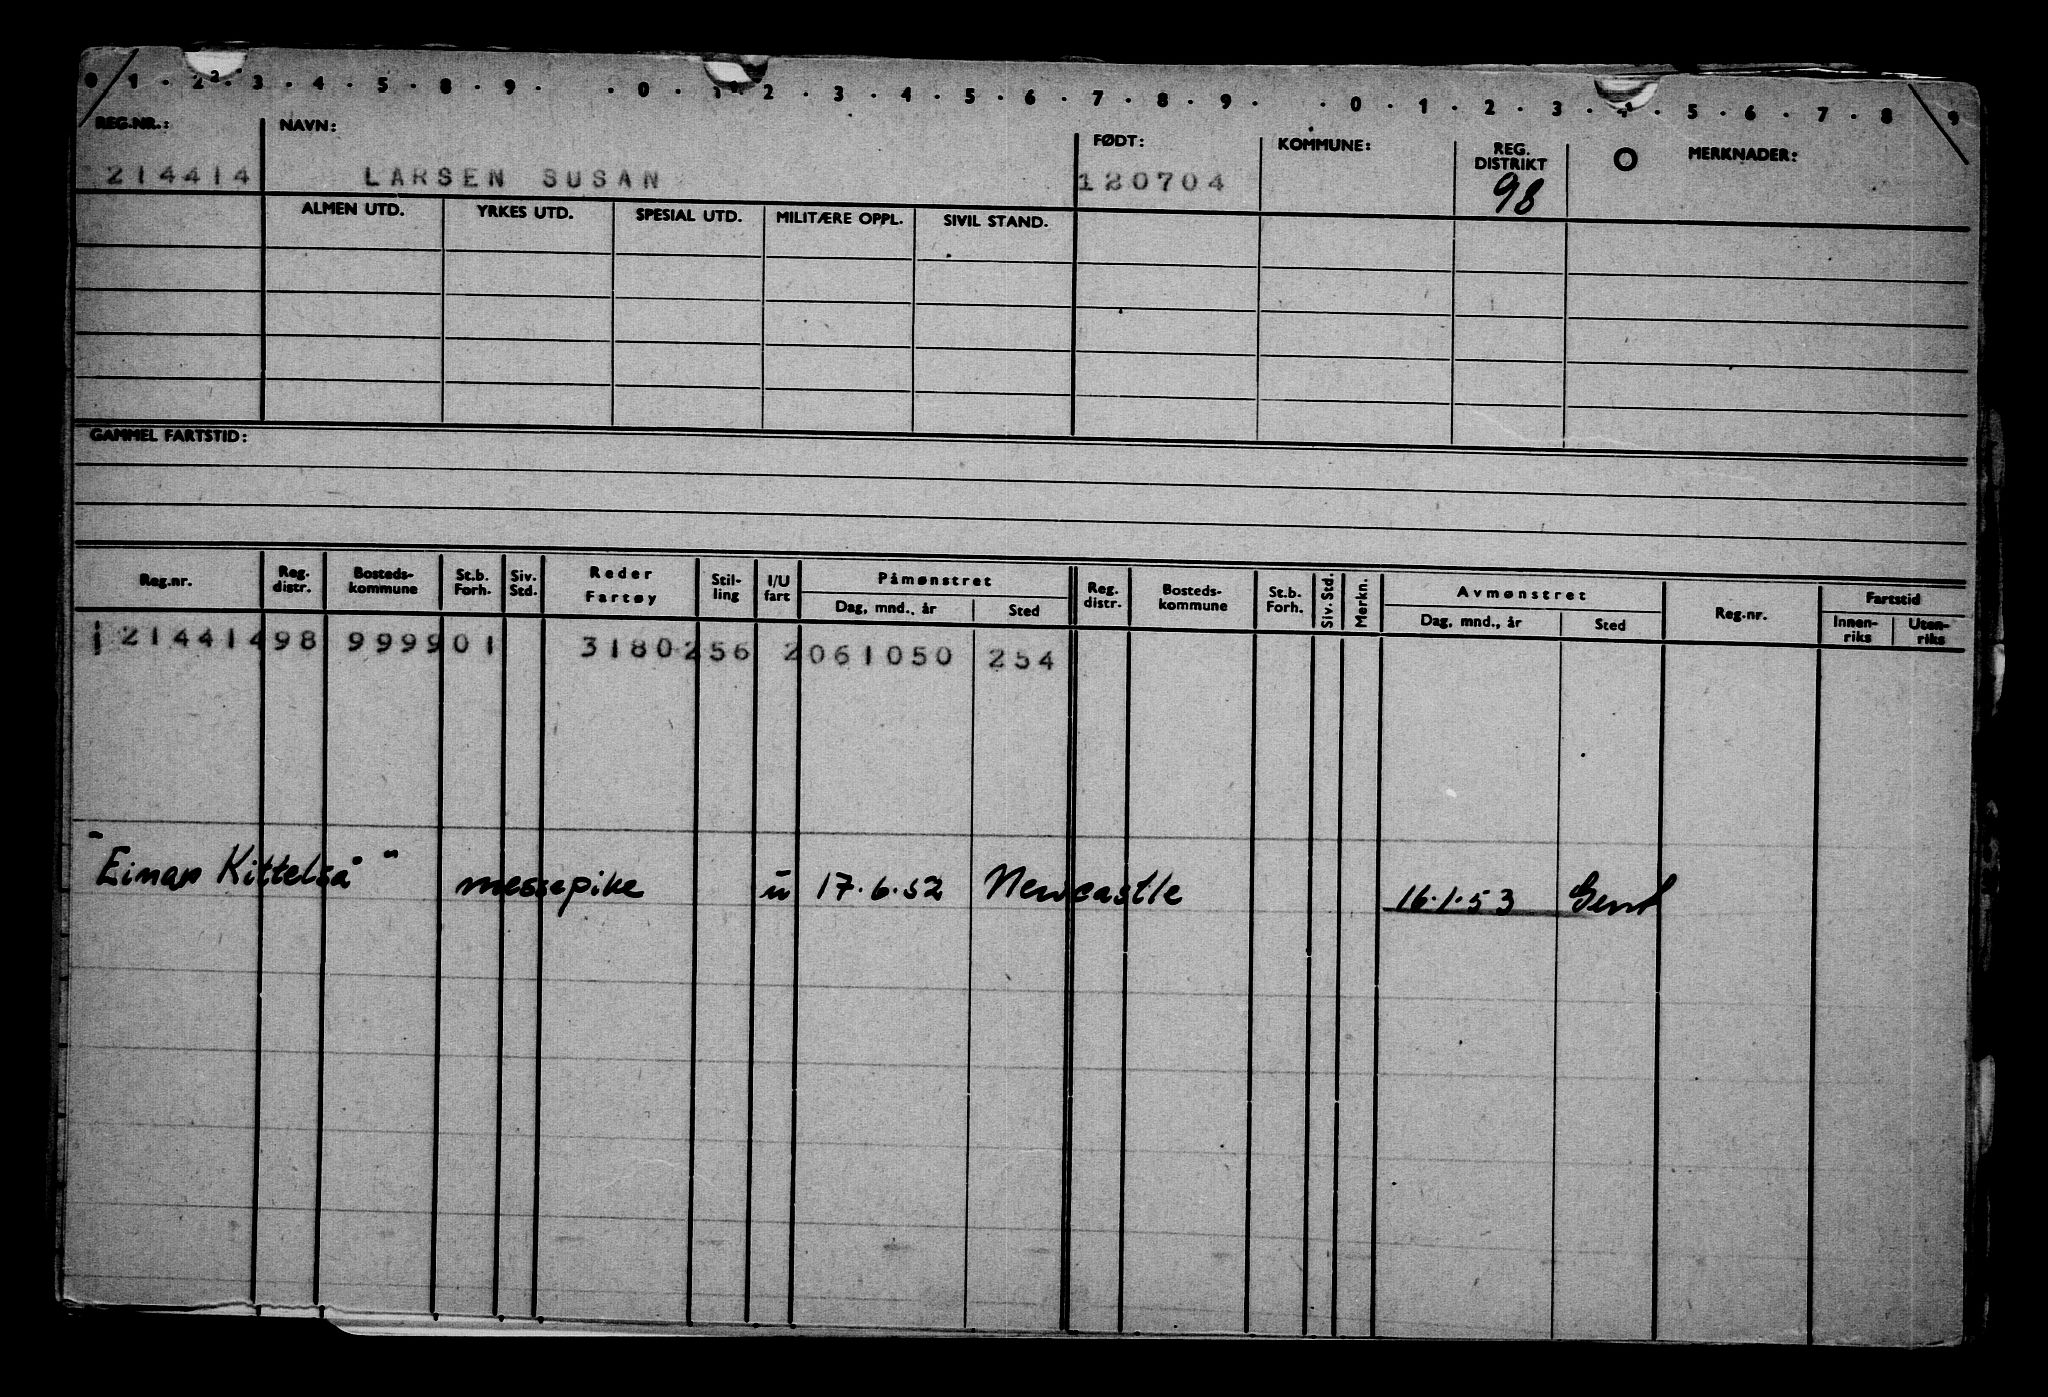 0 1 . 2 2 . 3 . 4 . 5 . 8 . 9 . . 0 . 1 2 . 3 . 4 . 5 . 6 . 7 . 8 . 9 . . 0 . 1 . 2 . 3 . 4 . 5 . 6 . 7 . 8 9
REG.NR.: NAVN: FØDT: KOMMUNE: REG. DISTRIKT O MERKNADER:
214414 LARSEN SUSAN 120704 98
ALMEN UTD. YRKES UTD. SPESIAL UTD. MILITÆRE OPPL. SIVIL STAND.
GAMMEL FARTSTID:
Reg.nr. Reg. distr. Bosteds-kommune St.b. Forh. Siv. Std. Reder Fartøy Stil-ling I/U fart Påmønstret Dag, mnd., år Sted Reg. distr. Bosteds-kommune St.b. Forh. Siv. Std. Merkn. Avmønstret Dag, mnd., år Sted Reg.nr. Fartstid Innen-riks Uten-riks
214414 98 9999 01 3180 256 2 061050 254
"Einar Kittelså" messepike u 17.6.52 Newcastle 16.1.53 Gent